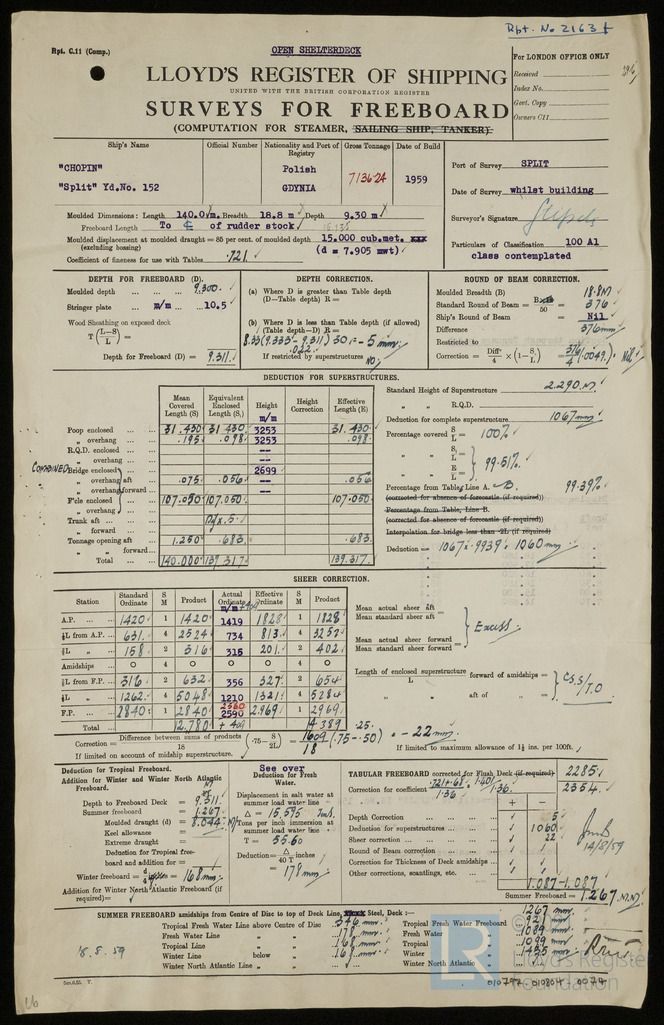 Rpt. No 2163
Rpt. C.11 (Comp.)
OPEN SHELTERDECK
LLOYD'S REGISTER OF SHIPPING
UNITED WITH THE BRITISH CORPORATION REGISTER
SURVEYS FOR FREEBOARD
(COMPUTATION FOR STEAMER, SAILING SHIP, TANKER).
For LONDON OFFICE ONLY
Received
Index No.
Govt. Copy
Owners C11
Ship's Name Official Number Nationality and Port of Registry Gross Tonnage Date of Build
"CHOPIN" Polish
"Split" Yd.No. 152 GDYNIA 7136.24 1959
Port of Survey SPLIT
Date of Survey whilst building
Surveyor's Signature
Particulars of Classification 100 A1
class contemplated
Moulded Dimensions: Length 140.0 m. Breadth 18.8 m Depth 9.30 m
Freeboard Length To ℄ of rudder stock
Moulded displacement at moulded draught = 85 per cent. of moulded depth 15.000 cub.met.
(excluding bossing) (d = 7.905 mwt)
Coefficient of fineness for use with Tables .721
DEPTH FOR FREEBOARD (D).
Moulded depth 9.300
Stringer plate m/m 10.5
Wood Sheathing on exposed deck
T (L-S / L) =
Depth for Freeboard (D) = 9.311
DEPTH CORRECTION.
(a) Where D is greater than Table depth
(D-Table depth) R =
(b) Where D is less than Table depth (if allowed)
(Table depth-D) R =
8.33(9.333 - 9.311) 30 = - 5 mm
.022
If restricted by superstructures NO
ROUND OF BEAM CORRECTION.
Moulded Breadth (B) 18.8M
Standard Round of Beam = B×12 / 50 = 376
Ship's Round of Beam = Nil
Difference 376mm
Restricted to
Correction = Diff / 4 × (1 - S / L) = 376 / 4 (.0049) = Nil
DEDUCTION FOR SUPERSTRUCTURES.
Mean Covered Length (S) Equivalent Enclosed Length (S₁) Height m/m Height Correction Effective Length (E)
Poop enclosed 31.430 31.430 3253 31.430
„ overhang .195 .098 3253 .098
R.Q.D. enclosed --
„ overhang --
COMBINED Bridge enclosed 2699
„ overhang aft .075 .056 -- .056
„ overhang forward --
F'cle enclosed 107.050 107.050 107.050
„ overhang
Trunk aft
„ forward
Tonnage opening aft 1.250 .683 .683
„ „ forward
Total 140.000 139.317 139.317
Standard Height of Superstructure 2.290 M.
„ „ R.Q.D.
Deduction for complete superstructure 1067 mm
Percentage covered S / L = 100%
„ „ S₁ / L =
„ „ E / L = 99.51%
Percentage from Table, Line A. B. 99.39%
(corrected for absence of forecastle (if required))
Percentage from Table, Line B.
(corrected for absence of forecastle (if required))
Interpolation for bridge less than .2L (if required)
Deduction = 1067 × .9939 = 1060 mm
SHEER CORRECTION.
Station Standard Ordinate S M Product Actual Ordinate m/m Effective Ordinate S M Product
A.P. 1420 1 1420 1419 1828 1 1828
⅙L from A.P. 631 4 2524 734 813 4 3252
⅓L „ 158 2 316 315 201 2 402
Amidships 0 4 0 0 0 4 0
⅓L from F.P. 316 2 632 356 327 2 654
⅙L „ 1262 4 5048 1210 1321 4 5284
F.P. 2840 1 2840 2560 2540 2969 1 2969
Total 12.780 14.389
Mean actual sheer aft
Mean standard sheer aft =
Mean actual sheer forward
Mean standard sheer forward =
Excess
Length of enclosed superstructure forward of amidships =
L
„ „ aft of „ =
C.S.S/T.O
Correction = Difference between sums of products / 18 (.75 - S / 2L) = 1609 / 18 (.75 - .50) = - 22 mm
.25
If limited on account of midship superstructure.
If limited to maximum allowance of 1½ ins. per 100ft.
Deduction for Tropical Freeboard.
Addition for Winter and Winter North Atlantic Freeboard.
Depth to Freeboard Deck = 9.311
Summer freeboard = 1.267
Moulded draught (d) = 8.044 M
Keel allowance =
Extreme draught =
Deduction for Tropical freeboard and addition for
Winter freeboard = 168 mm
Addition for Winter North Atlantic Freeboard (if required) =
See over
Deduction for Fresh Water.
Displacement in salt water at summer load water line
Δ = 15,595
Tons per inch immersion at summer load water line
T = 55.60
Deduction = Δ / 40 T inches
= 178 mm
TABULAR FREEBOARD corrected for Flush Deck (if required) 2285
Correction for coefficient .721+.68 / 1.36 1.401 / 1.36 2354
+ -
Depth Correction 5
Deduction for superstructures 1060
Sheer correction 22
Round of Beam correction
Correction for Thickness of Deck amidships
Other corrections, scantlings, etc.
1.087 -1.087
14/8/59
Summer Freeboard = 1.267 M
SUMMER FREEBOARD amidships from Centre of Disc to top of Deck Line, Steel, Deck :— 1267 mm
Tropical Fresh Water Line above Centre of Disc 346 mm Tropical Fresh Water Freeboard 921 mm
Fresh Water Line „ „ 178 mm Fresh Water „ 1089 mm
Tropical Line „ „ 168 mm Tropical „ 1099 mm
Winter Line below „ „ Winter „ 1435 mm
Winter North Atlantic Line „ „ Winter North Atlantic „
18.8.59
Lloyd's Register
Foundation
010797-010804-0074